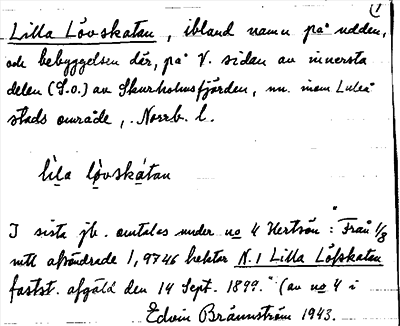 1
Lilla Lövskatan, ibland namn på udden,
och bebyggelsen där, på V. sidan av innersta
delen (S.o.) av Skurholmsfjärden, nu inom Luleå
stads område, Norrb. l.
lìla lövskátan
I sista jb. omtalas under no 4 Hertsön: "Från 1/8
mtl avsöndrade 1,9746 hektar N. 1 Lilla Löfskatan
fastst. afgäld den 14 Sept. 1899." (av no 4 i
Edvin Brännström 1943.